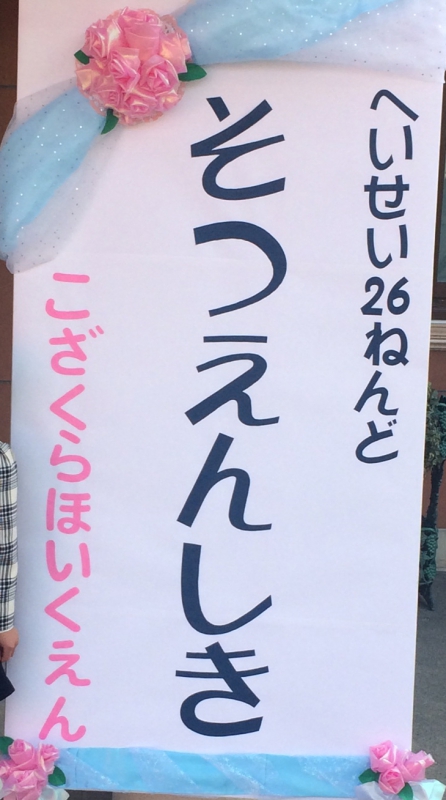 へいせい26ねんど
そつえんしき
こざくらほいくえん